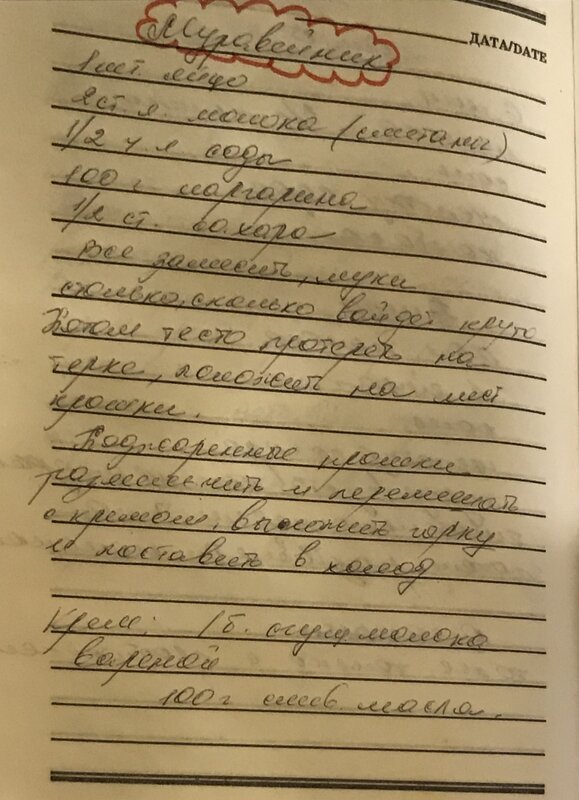 Муравейник
ДАТА/DATE
1 шт. яйцо
2 ст. л. молока (сметаны)
1/2 ч л соды
100 г маргарина
1/2 ст. сахара
Все замесить, муки
столько, сколько войдет круто
Потом тесто протереть на
терке, положить на лист
крошки.
Поджаренные крошки
размельчить и перемешать
с кремом, выложить горку
и поставить в холод
Крем: 1 б. сгущ. молока
вареной
100 г слив. масла.